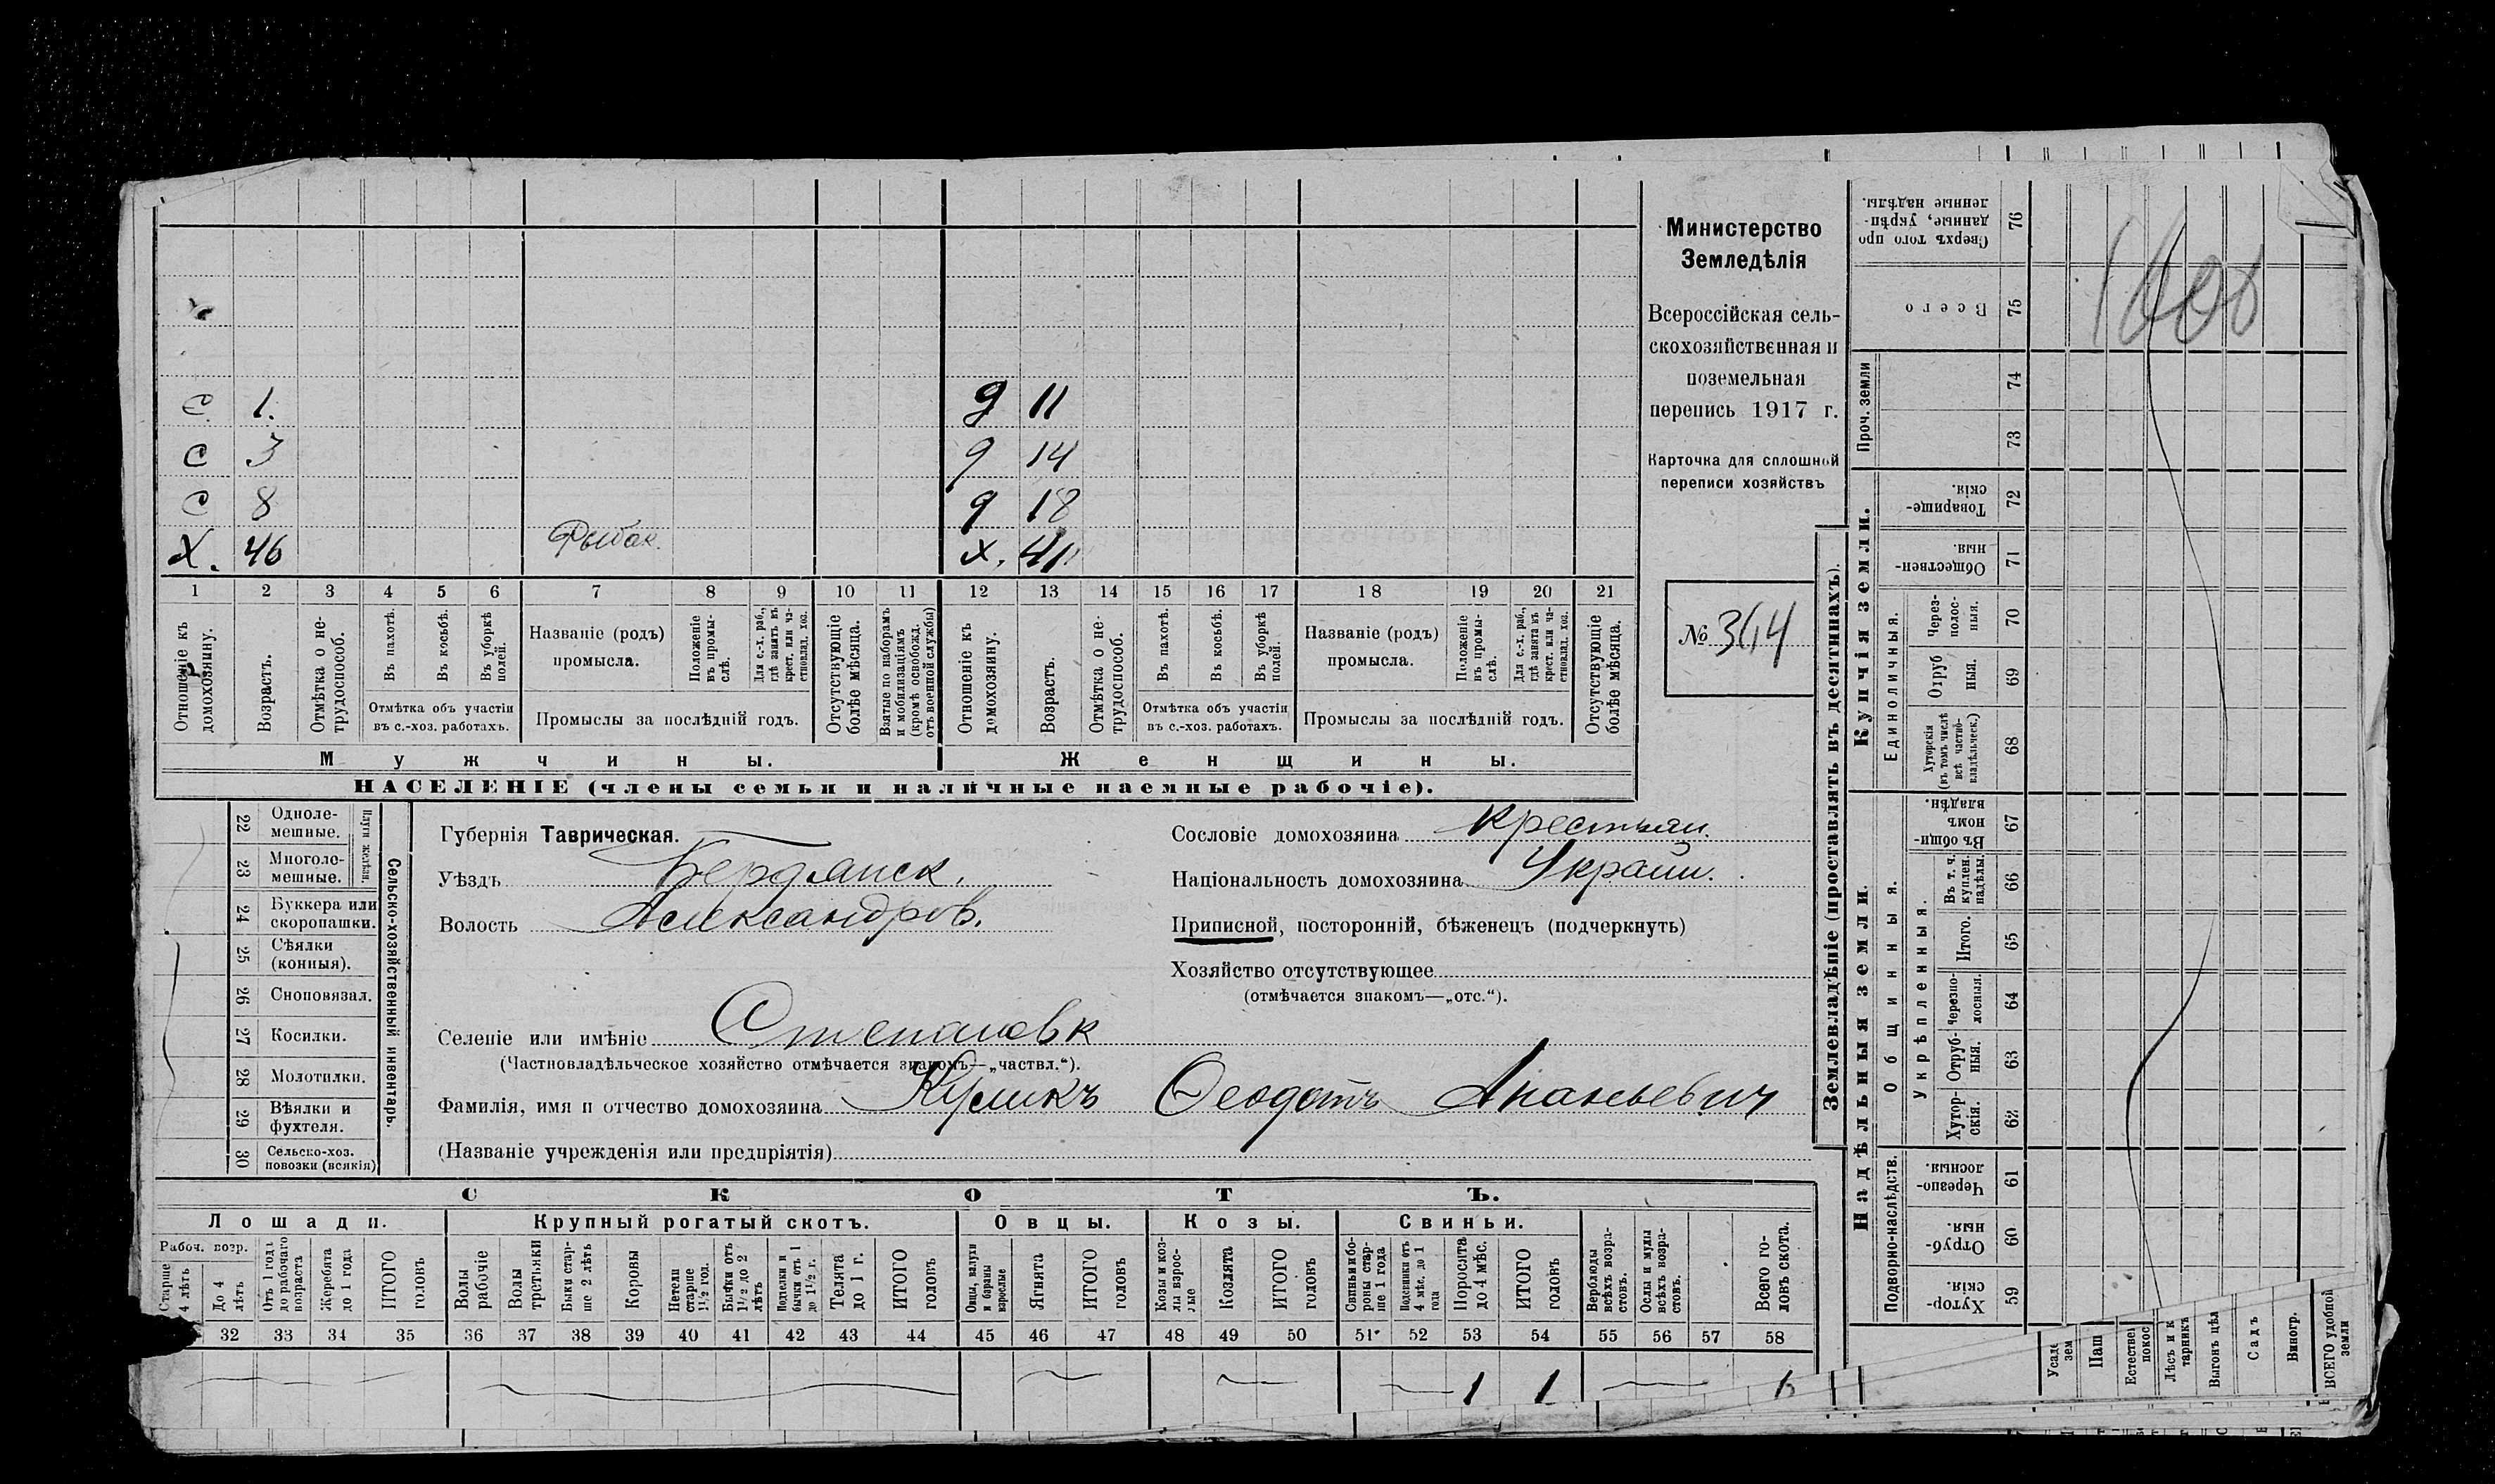 С 1. д 11
С 3 д 14
С 8 д 18
Х. 46 Рыбак. х. 41
1 2 3 4 5 6 7 8 9 10 11 12 13 14 15 16 17 18 19 20 21
Отношеніе къ домохозяину.
Возрастъ.
Отмѣтка о нетрудоспособ.
Въ пахотѣ.
Въ косьбѣ.
Въ уборкѣ полей.
Отмѣтка объ участіи
въ с.-хоз. работахъ.
Названіе (родъ)
промысла.
Положеніе въ промыслѣ.
Для с.-х. раб., гдѣ занятъ въ крест. или частновлад. хоз.
Промыслы за послѣдній годъ.
Отсутствующіе болѣе мѣсяца.
Взятые по наборамъ и мобилизаціямъ (кромѣ освобожд. отъ военной службы)
Отношеніе къ домохозяину.
Возрастъ.
Отмѣтка о нетрудоспособ.
Въ пахотѣ.
Въ косьбѣ.
Въ уборкѣ полей.
Отмѣтка объ участіи
въ с.-хоз. работахъ.
Названіе (родъ)
промысла.
Положеніе въ промыслѣ.
Для с.-х. раб., гдѣ занята въ крест. или частновлад. хоз.
Промыслы за послѣдній годъ.
Отсутствующіе болѣе мѣсяца.
Мужчины. Женщины.
НАСЕЛЕНІЕ (члены семьи и наличные наемные рабочіе).
Министерство
Земледѣлія
Всероссійская сель-
скохозяйственная и
поземельная
перепись 1917 г.
Карточка для сплошной
переписи хозяйствъ
№ 364
22 Одноле-
мешные.
23 Многоле-
мешные.
Плуги желѣзн.
24 Буккера или
скоропашки.
25 Сѣялки
(конныя).
26 Сноповязал.
27 Косилки.
28 Молотилки.
29 Вѣялки и
фухтеля.
30 Сельско-хоз.
повозки (всякія)
Сельско-хозяйственный инвентарь.
Губернія Таврическая.
Уѣздъ Бердянск.
Волость Александров.
Сословіе домохозяина крестьян.
Національность домохозяина Украин.
Приписной, посторонній, бѣженецъ (подчеркнуть)
Хозяйство отсутствующее
(отмѣчается знакомъ—„отс.“).
Селеніе или имѣніе Степановк
(Частновладѣльческое хозяйство отмѣчается знакомъ—„частвл.“).
Фамилія, имя и отчество домохозяина Куликъ Ѳеодотъ Ананьевич
(Названіе учрежденія или предпріятія)
СКОТЪ.
Лошади. Крупный рогатый скотъ. Овцы. Козы. Свиньи.
Рабоч. возр.
Старше 4 лѣтъ
До 4 лѣтъ
Отъ 1 года до рабочаго возраста
Жеребята до 1 года
ИТОГО головъ
Волы рабочіе
Волы третьяки
Быки старше 2 лѣтъ
Коровы
Нетели старше 1½ год.
Бычки отъ 1½ до 2 лѣтъ
Подтелки и бычки отъ 1 до 1½ г.
Телята до 1 г.
ИТОГО головъ
Овцы, валухи и бараны взрослые
Ягнята
ИТОГО головъ
Козы и козлы взрослые
Козлята
ИТОГО головъ
Свиньи и бороны старше 1 года
Подсвинки отъ 4 мѣс. до 1 года
Поросята до 4 мѣс.
ИТОГО головъ
Верблюды всѣхъ возрастовъ.
Ослы и мулы всѣхъ возрастовъ.
Всего головъ скота.
32 33 34 35 36 37 38 39 40 41 42 43 44 45 46 47 48 49 50 51 52 53 54 55 56 57 58
1 1
Землевладѣніе (проставлять въ десятинахъ).
Купчія земли.
Надѣльныя земли.
Проч. земли
Единоличныя.
Общинныя.
Укрѣпленныя.
Подворно-наслѣдств.
Сверхъ того проданные, укрѣпленные надѣлы. 76
Всего 75
74
73
Товарищескія. 72
Общественныя. 71
Черезполосныя. 70
Отрубныя. 69
Хуторскія (въ томъ числѣ всѣ частновладѣльческ.) 68
Въ общинномъ владѣн. 67
Въ т. ч. куплен. надѣлы. 66
Итого. 65
Черезполосныя. 64
Отрубныя. 63
Хуторскія. 62
Черезполосныя. 61
Отрубныя. 60
Хуторскія. 59
Паш
Выгонъ
Садъ
Виногр.
ВСЕГО удобной земли